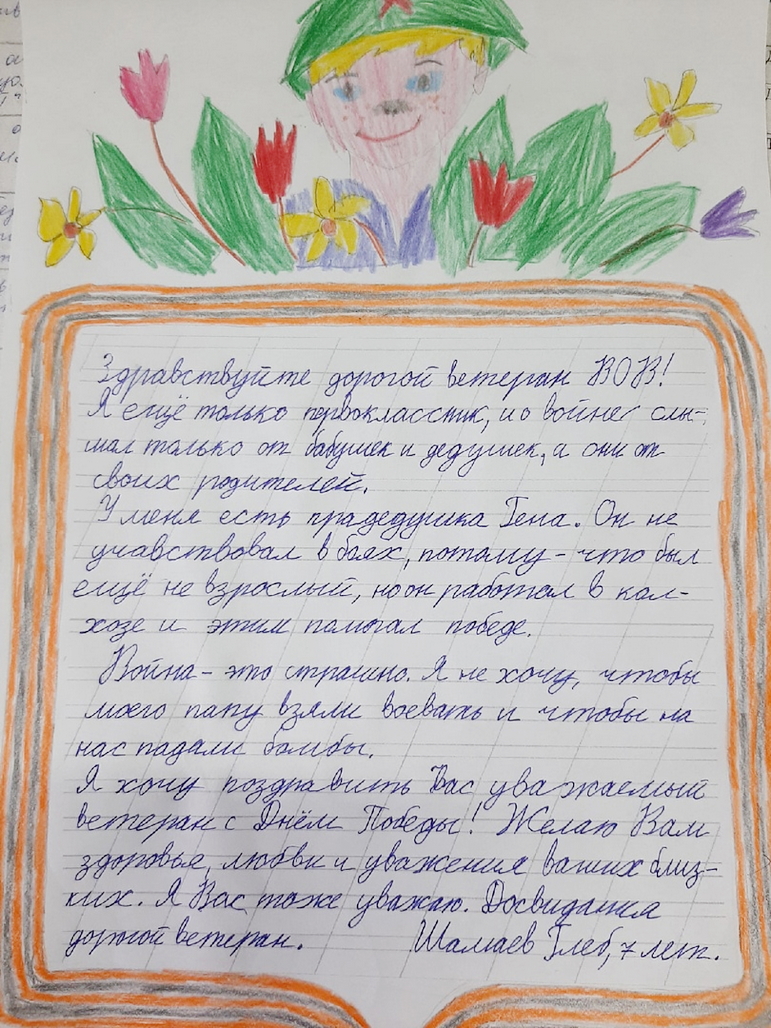 Здравствуйте дорогой ветеран ВОВ!
Я ещё только первоклассник, и о войне слы-
шал только от бабушек и дедушек, а они от
своих родителей.
У меня есть прадедушка Гена. Он не
учавствовал в боях, потому-что был
ещё не взрослый, но он работал в кол-
хозе и этим помогал победе.
Война - это страшно. Я не хочу, чтобы
моего папу взяли воевать и чтобы на
нас падали бомбы.
Я хочу поздравить Вас уважаемый
ветеран с Днём Победы! Желаю Вам
здоровье, любви и уважения ваших близ-
ких. Я Вас тоже уважаю. Досвидания
дорогой ветеран. Шамаев Глеб, 7 лет.